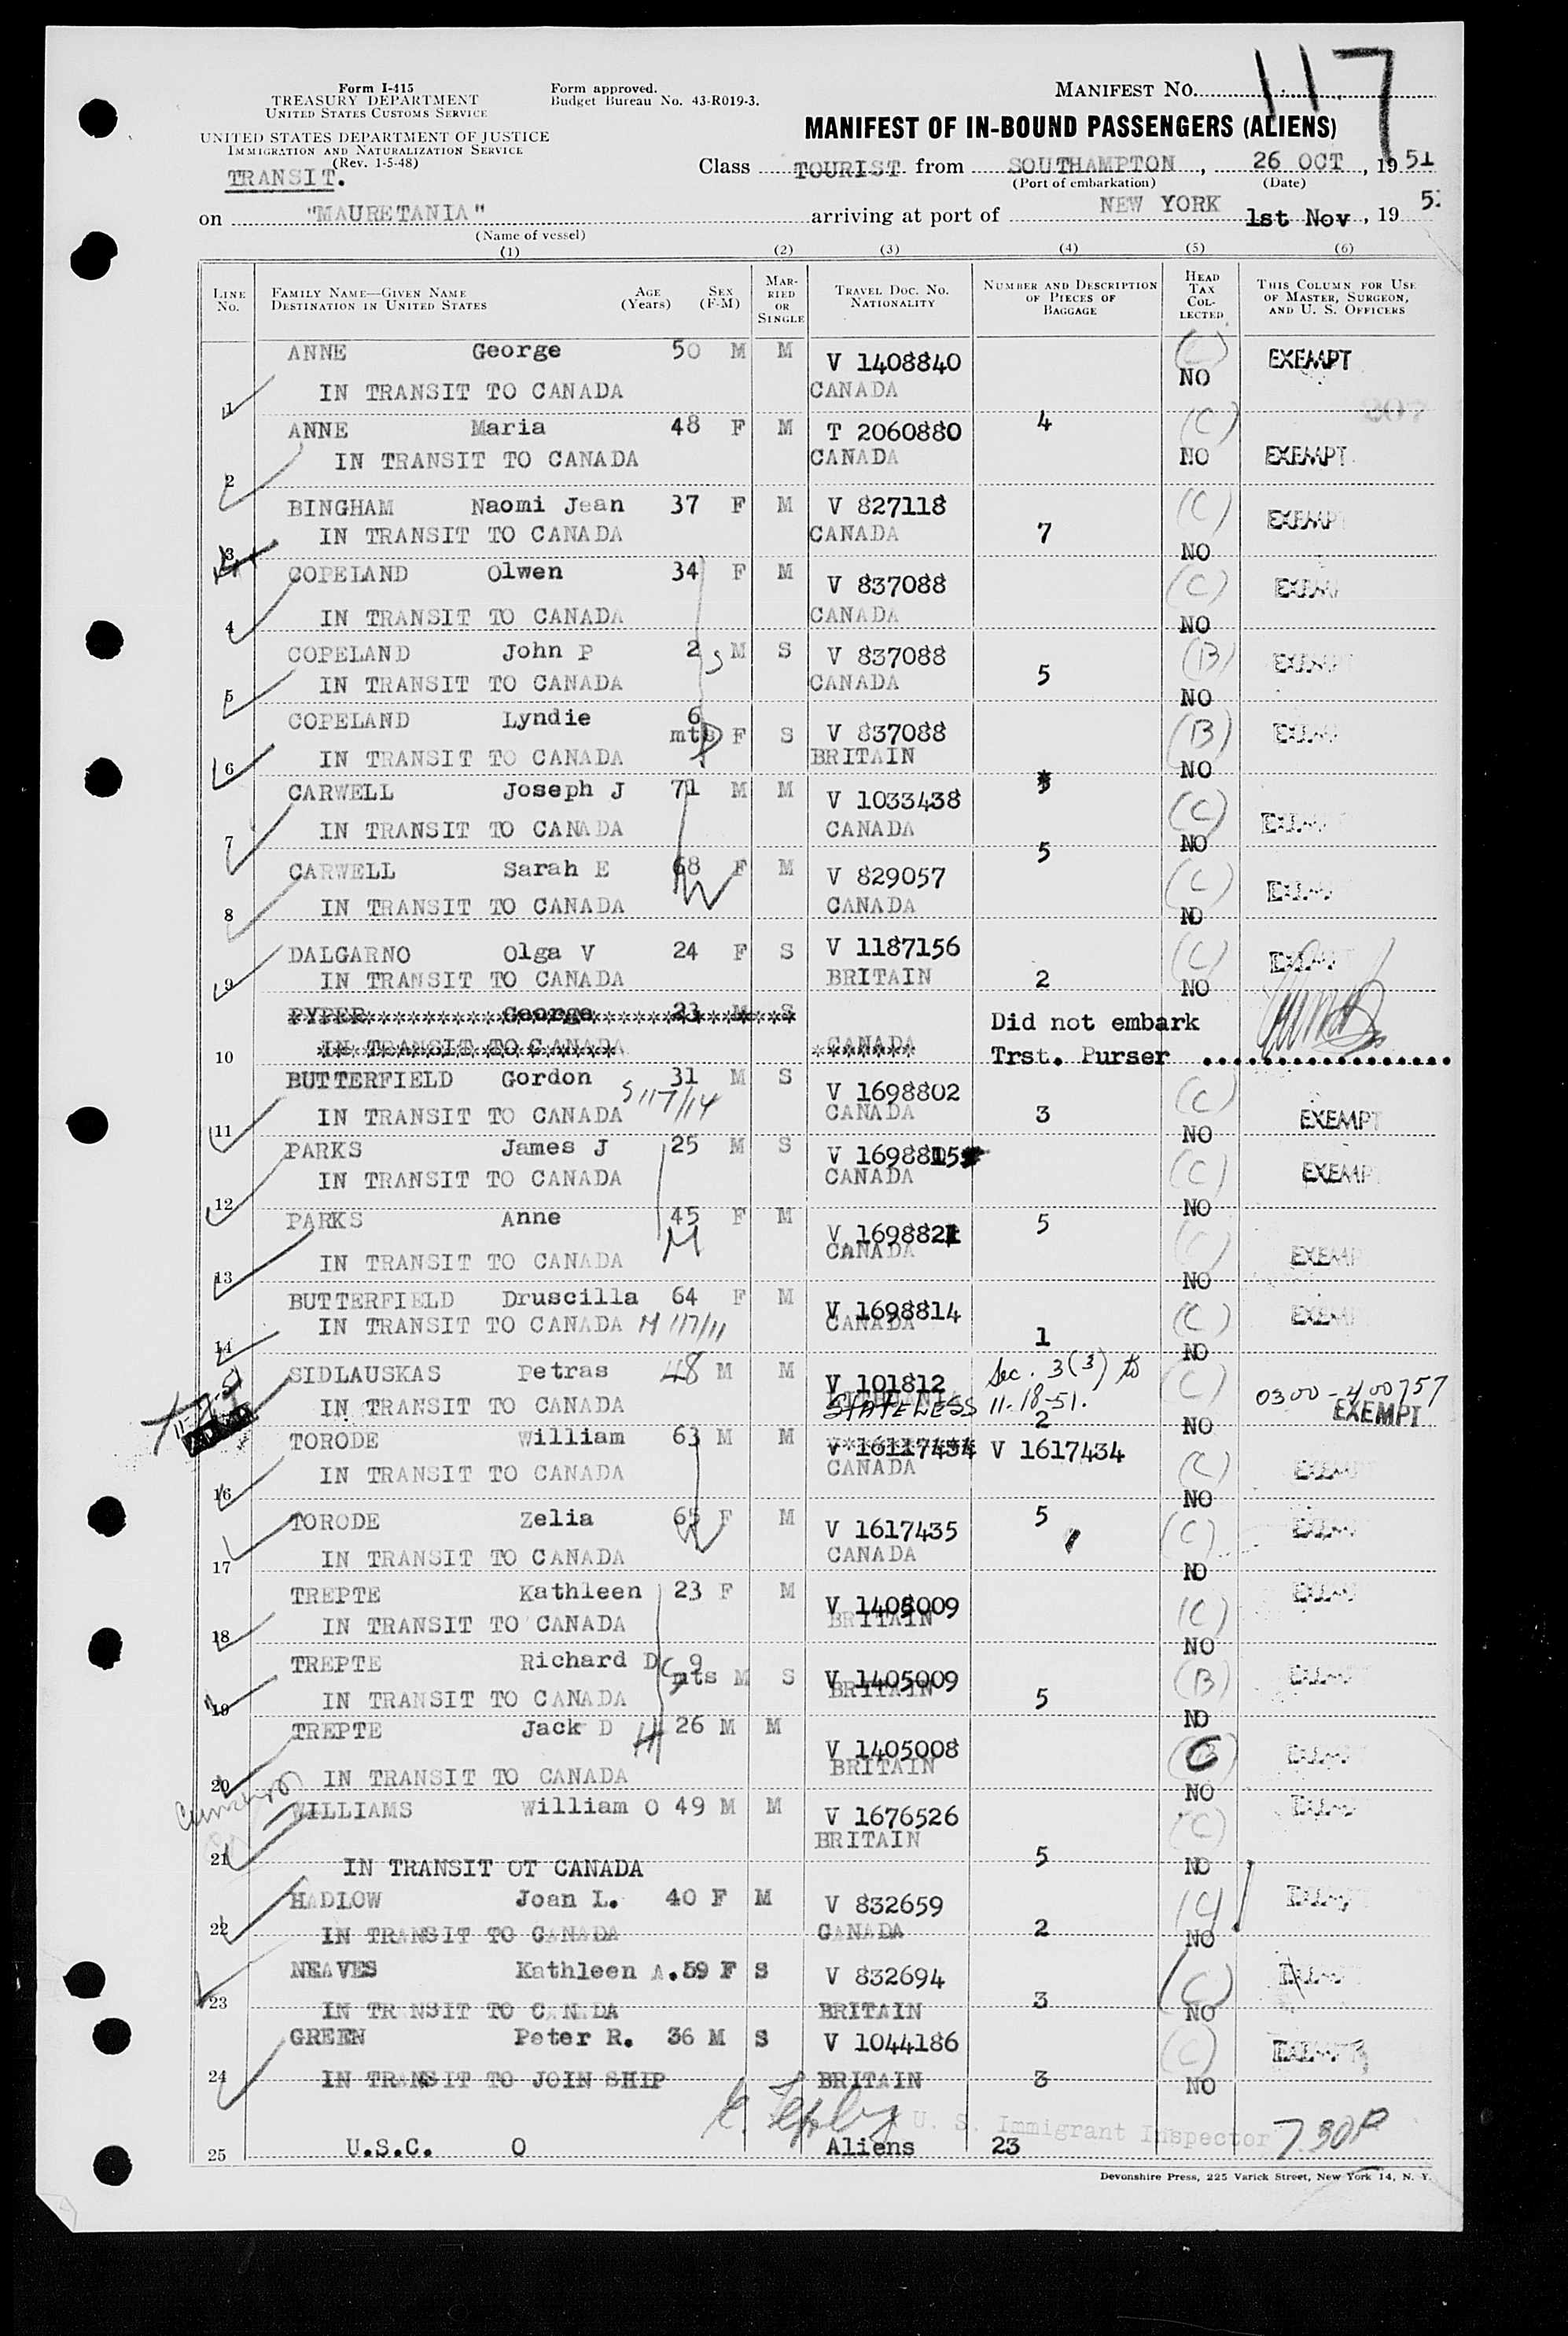 117
Form I-415
TREASURY DEPARTMENT
UNITED STATES CUSTOMS SERVICE
Form approved.
Budget Bureau No. 43-R019-3.
MANIFEST NO.
UNITED STATES DEPARTMENT OF JUSTICE
IMMIGRATION AND NATURALIZATION SERVICE
(Rev. 1-5-48)
MANIFEST OF IN-BOUND PASSENGERS (ALIENS)
TRANSIT.
Class TOURIST from SOUTHAMPTON, 26 OCT, 1951
(Port of embarkation) (Date)
on "MAURETANIA" arriving at port of NEW YORK 1st Nov, 19 5
(Name of vessel)
(1) (2) (3) (4) (5) (6)
LINE NO. FAMILY NAME—GIVEN NAME DESTINATION IN UNITED STATES AGE (Years) SEX (F-M) MARRIED OR SINGLE TRAVEL DOC. NO. NATIONALITY NUMBER AND DESCRIPTION OF PIECES OF BAGGAGE HEAD TAX COLLECTED THIS COLUMN FOR USE OF MASTER, SURGEON, AND U. S. OFFICERS
ANNE George 50 M M V 1408840 (C) EXEMPT
1 IN TRANSIT TO CANADA CANADA NO
207
ANNE Maria 48 F M T 2060880 4 (C)
2 IN TRANSIT TO CANADA CANADA NO EXEMPT
BINGHAM Naomi Jean 37 F M V 827118 (C) EXEMPT
3 IN TRANSIT TO CANADA CANADA 7 NO
COPELAND Olwen 34 F M V 837088 (C)
4 IN TRANSIT TO CANADA CANADA NO
COPELAND John P 2 M S V 837088 (B)
5 IN TRANSIT TO CANADA CANADA 5 NO
COPELAND Lyndie 6 mts F S V 837088 (B)
6 IN TRANSIT TO CANADA BRITAIN NO
CARWELL Joseph J 71 M M V 1033438 (C)
7 IN TRANSIT TO CANADA CANADA NO
5
CARWELL Sarah E 68 F M V 829057 (C)
8 IN TRANSIT TO CANADA CANADA NO
DALGARNO Olga V 24 F S V 1187156 (C)
9 IN TRANSIT TO CANADA BRITAIN 2 NO
PYPER George 23 M S Did not embark
10 IN TRANSIT TO CANADA CANADA Trst. Purser
BUTTERFIELD Gordon 31 M S V 1698802 (C)
S 117/14
11 IN TRANSIT TO CANADA CANADA 3 NO EXEMPT
PARKS James J 25 M S V 1698815 (C) EXEMPT
12 IN TRANSIT TO CANADA CANADA NO
PARKS Anne 45 F M V 1698821 5
13 IN TRANSIT TO CANADA CANADA NO
BUTTERFIELD Druscilla 64 F M V 1698814 (C)
14 IN TRANSIT TO CANADA M 117/11 CANADA 1 NO
SIDLAUSKAS Petras 48 M M V 101812 Sec. 3(3) to (C) 0300-400757
IN TRANSIT TO CANADA STATELESS 11-18-51. 2 NO EXEMPT
TORODE William 63 M M V 16117434 V 1617434 (C)
16 IN TRANSIT TO CANADA CANADA NO
TORODE Zelia 65 F M V 1617435 5 (C)
17 IN TRANSIT TO CANADA CANADA NO
TREPTE Kathleen 23 F M V 1405009 (C)
18 IN TRANSIT TO CANADA BRITAIN NO
TREPTE Richard D 9 mts M S V 1405009 (B)
19 IN TRANSIT TO CANADA BRITAIN 5 NO
TREPTE Jack D 26 M M V 1405008 C
20 IN TRANSIT TO CANADA BRITAIN NO
WILLIAMS William O 49 M M V 1676526 (C)
BRITAIN
21 IN TRANSIT OT CANADA 5 NO
HADLOW Joan L. 40 F M V 832659
22 IN TRANSIT TO CANADA CANADA 2 NO
NEAVES Kathleen A. 59 F S V 832694 (C)
23 IN TRANSIT TO CANADA BRITAIN 3 NO
GREEN Peter R. 36 M S V 1044186 (C)
24 IN TRANSIT TO JOIN SHIP BRITAIN 3 NO
U. S. Immigrant Inspector 730P
25 U.S.C. 0 Aliens 23
Devonshire Press, 225 Varick Street, New York 14, N. Y.